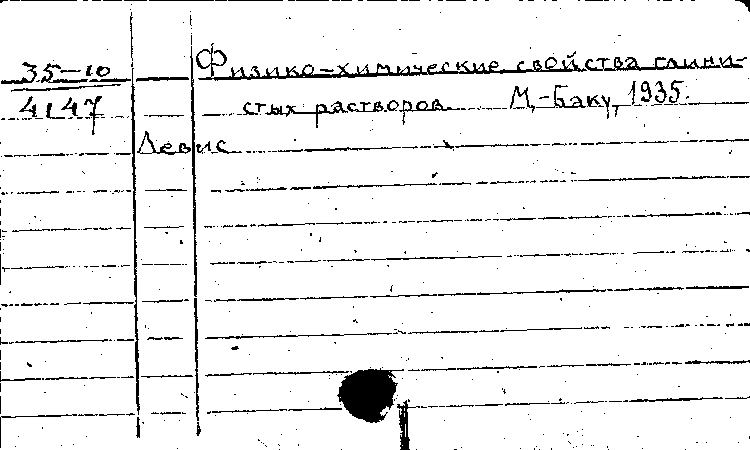 35-10 Физико-химические свойства глини-
4147 стых растворов. М,-Баку, 1935.
Левис